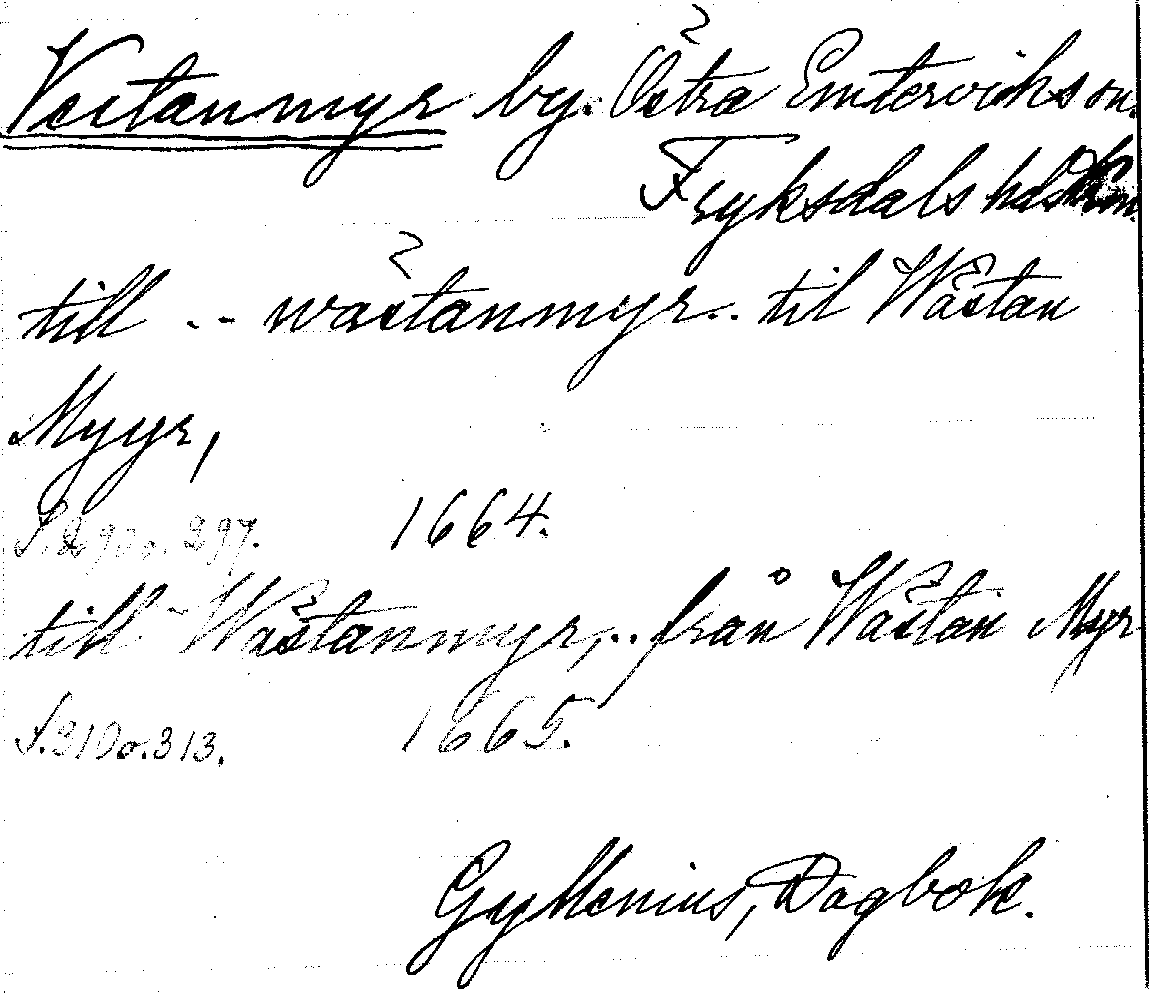 Vestanmyr by. Östra Emterviks sn.
Fryksdals hd
till .. wästanmyr.. til Wästan
Myyr,
S. 290 o. 297. 1664.
till Wästanmyr,.. från Wästan Myr
S. 310 o. 313. 1665.
Gyllenius, Dagbok.